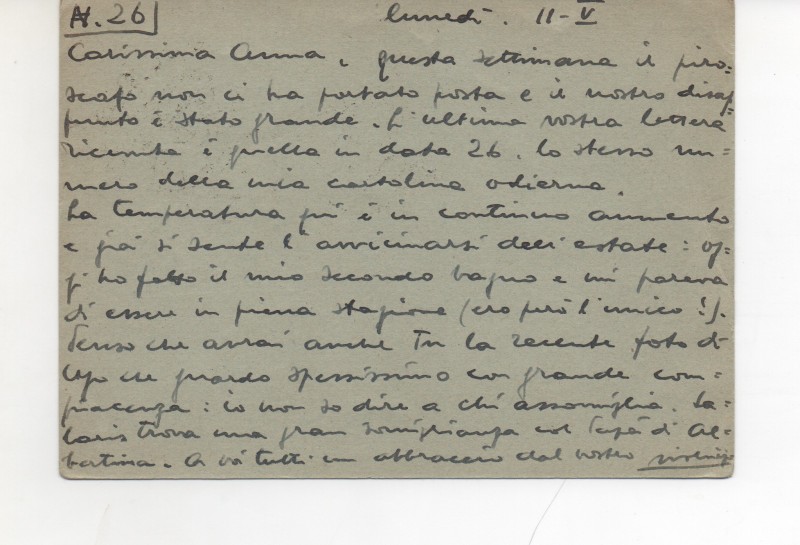 N. 26 lunedì. 11-V
Carissima Anna, questa settimana il piro=
scafo non ci ha portato posta e il nostro disap=
punto è stato grande. L'ultima vostra lettera
ricevuta è quella in data 26. lo stesso nu=
mero della mia cartolina odierna.
La temperatura qui è in continuo aumento
e già si sente l'avvicinarsi dell'estate: og=
gi ho fatto il mio secondo bagno e mi pareva
di essere in piena stagione (ero però l'unico!).
Penso che avrai anche Tu la recente foto di
che guardo spessissimo con grande com=
piacenza: io non so dire a chi assomiglia.
trova una gran somiglianza col Papà di Al=
bertina. A voi tutti un abbraccio dal vostro